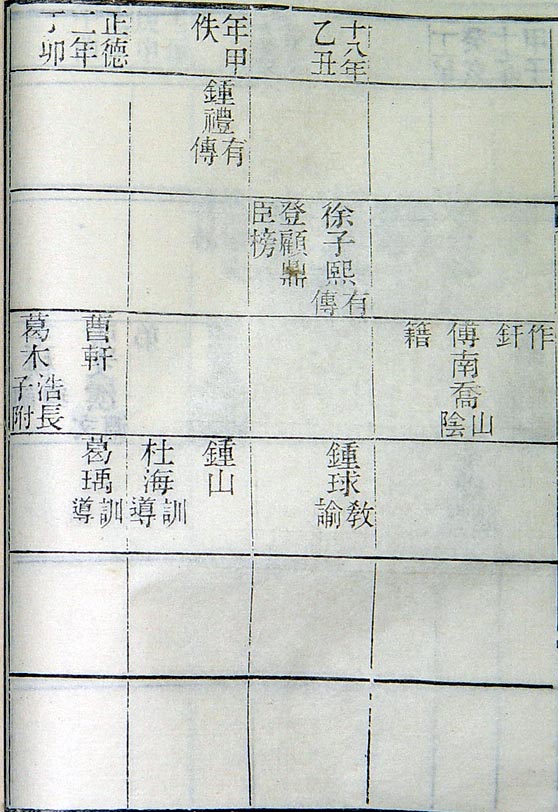 十八年
乙丑
年甲
佚
正德
二年
丁卯
鍾禮有傳
徐子熙有傳
登顧鼎
臣榜
作釬
傅南喬山陰
籍
曹軒
葛木浩長子附
鍾球教諭
鍾山
杜海訓導
葛瑀訓導